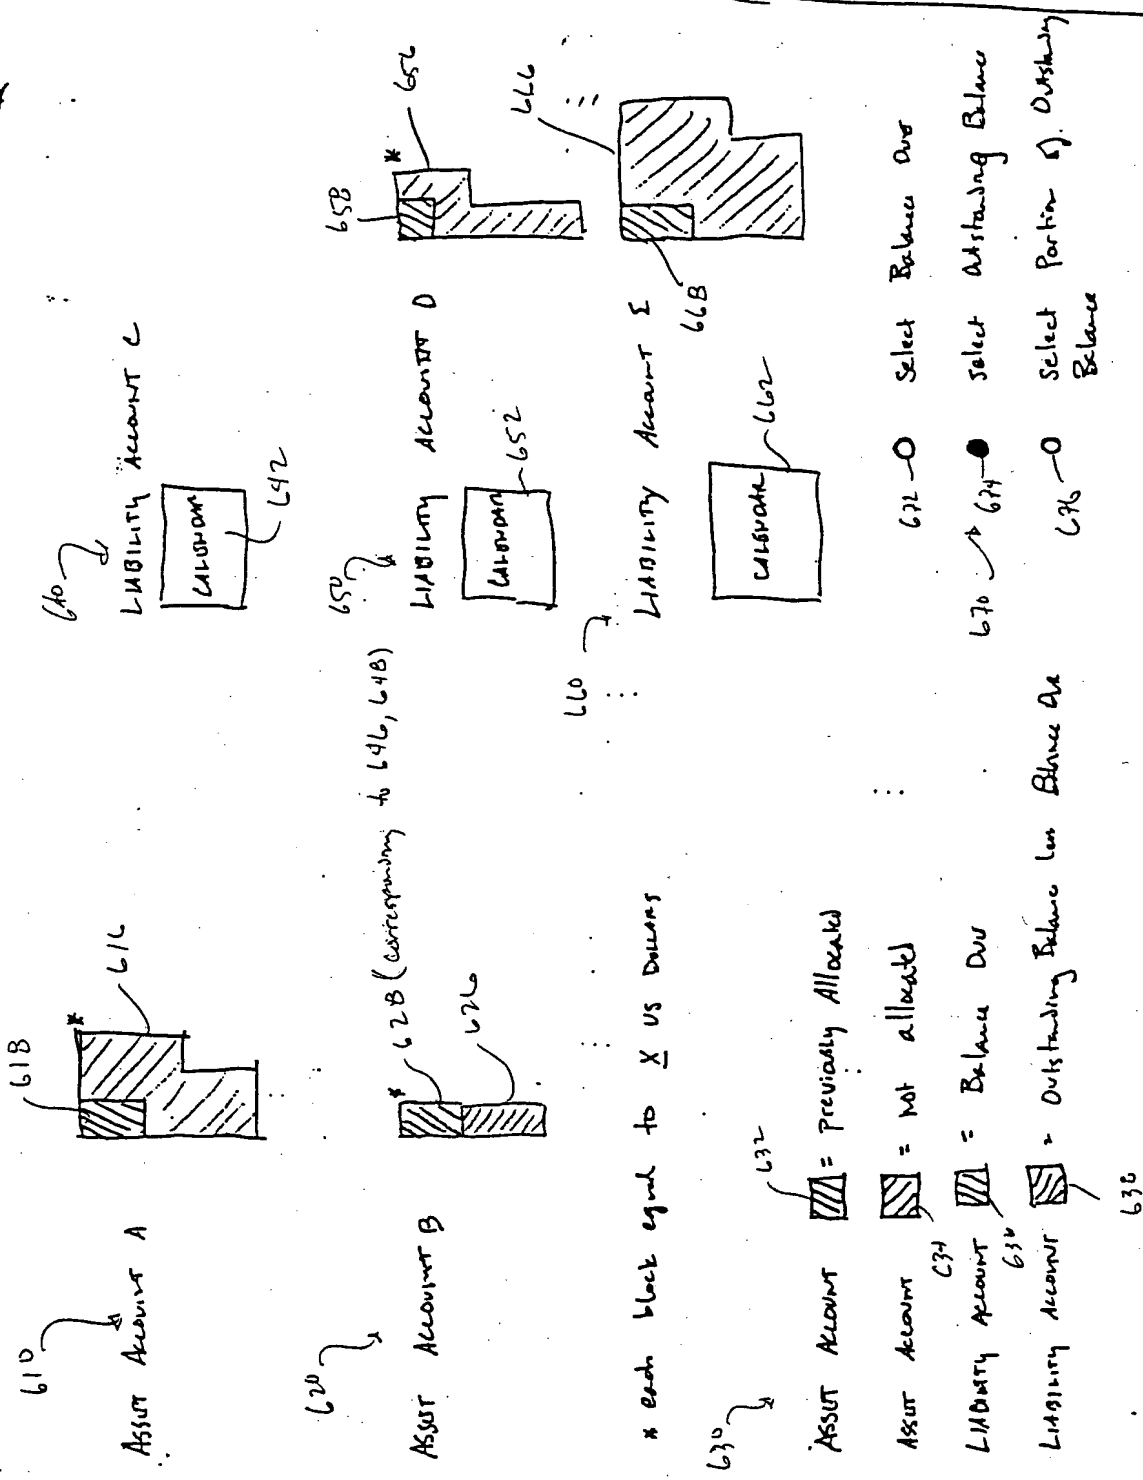 610
ASSET ACCOUNT A
618
*
616
620
ASSET ACCOUNT B
*
628 (corresponding to 646, 648)
626
* each block equal to X US DOLLARS
630
632
ASSET ACCOUNT = Previously Allocated
ASSET ACCOUNT = not allocated
634
LIABILITY ACCOUNT = Balance Due
636
LIABILITY ACCOUNT = Outstanding Balance less Balance Due
638
640
LIABILITY ACCOUNT C
CALENDAR
642
650
LIABILITY ACCOUNT D
CALENDAR
652
658
*
656
660
LIABILITY ACCOUNT E
CALENDAR
662
668
666
672
Select Balance Due
670
674
Select Outstanding Balance
676
Select Portion of Outstanding
Balance